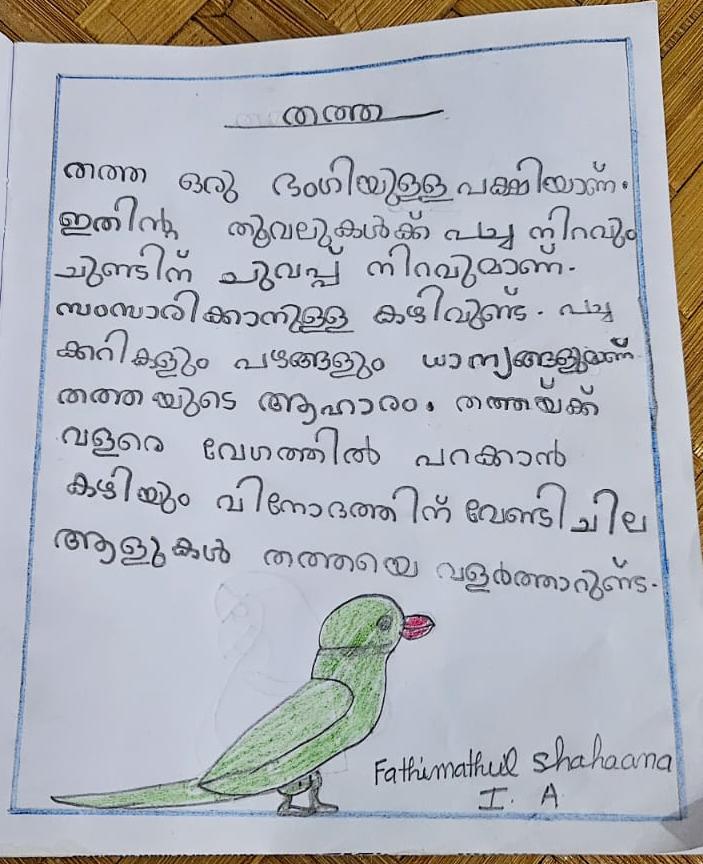 തത്ത
തത്ത ഒരു ഭംഗിയുള്ള പക്ഷിയാണ്.
ഇതിന്റെ തൂവലുകൾക്ക് പച്ച നിറവും
ചുണ്ടിന് ചുവപ്പ് നിറവുമാണ്.
സംസാരിക്കാനുള്ള കഴിവുണ്ട്. പച്ച
ക്കറികളും പഴങ്ങളും ധാന്യങ്ങളുമാണ്
തത്തയുടെ ആഹാരം. തത്തയ്ക്ക്
വളരെ വേഗത്തിൽ പറക്കാൻ
കഴിയും വിനോദത്തിന് വേണ്ടി ചില
ആളുകൾ തത്തയെ വളർത്താറുണ്ട്.
Fathimathul Shahaana
I. A